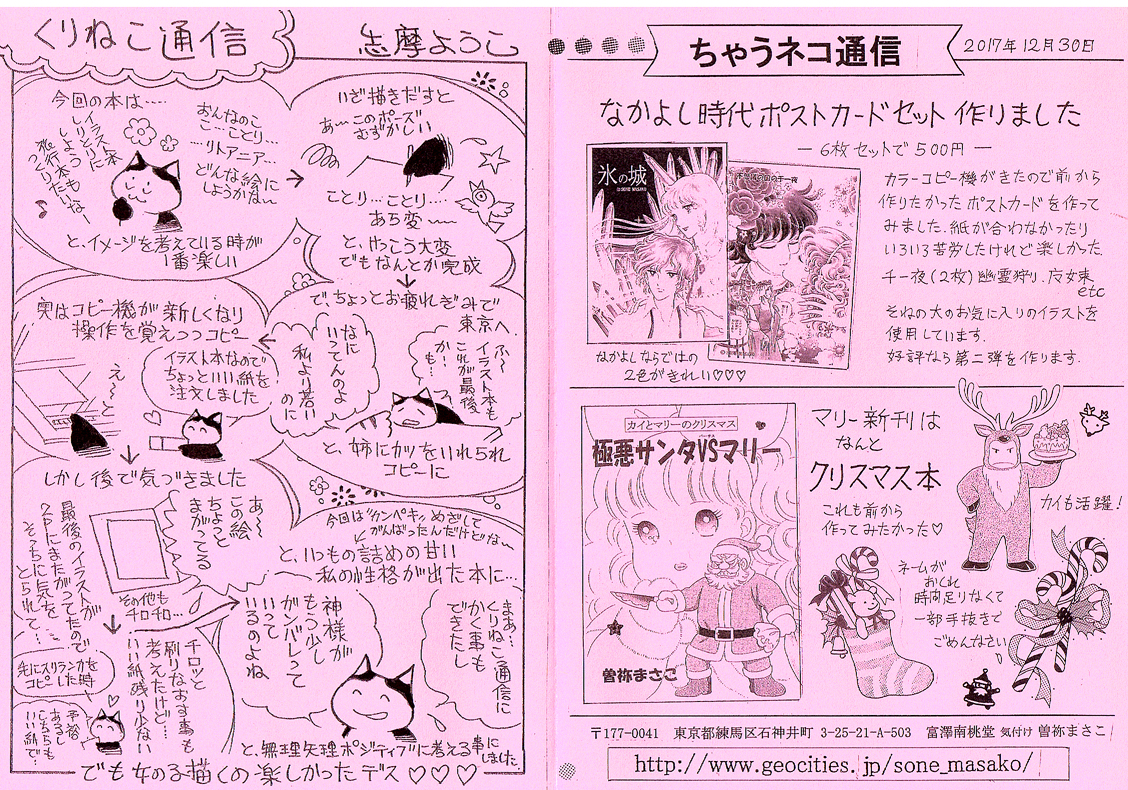 くりねこ通信
志摩ようこ
今回の本は‥‥
イラスト本
しりとりに
しようかなー
おんなのこ
こ…ことり…
…リトアニア…
どんな絵に
しようかな〜
と、イメージを考えている時が
1番楽しい
いざ描きだすと
あ〜このポーズ
むずかしい
ことり…ことり‥‥
あち変〜〜
と、けっこう大変
でもなんとか完成
で、ちょっとお疲れぎみで
東京へ
ふ〜
イラスト本も
これが最後
か‥も‥
なに
いってんのよ
私より若い
のに
と、姉にカツをいれられ
コピーに
実はコピー機が新しくなり
操作を覚えつつコピー
え〜と
イラスト本なので
ちょっといい紙を
注文しました
しかし後で気づきました
あ〜
この絵
ちょっと
まがってる
最後のイラストが
2Pにまたがってたので
そっちに気を
とられて…
その他も
チロチロ…
チロッと
刷りなおす事も
考えたけど…
いい紙残り少ない
先にスリランカを
コピーした時
予備
あるし
こちらも
いい紙で‥
今回は〝カンペキ〟めざして
がんばったんだけどな〜
と、いつもの詰めの甘い
私の性格が出た本に…
まぁ…
くりねこ通信に
かく事も
できたし
神様が
もう少し
ガンバレって
いって
いるのよね
と、無理矢理ポジティブに考える事に
しました
でも女の子描くの楽しかったデス♡♡♡
ちゃうネコ通信
2017年12月30日
なかよし時代ポストカードセット作りました
― 6枚セットで500円 ―
氷の城
千一夜
カラーコピー機がきたので前から
作りたかったポストカードを作って
みました。紙が合わなかったり
いろいろ苦労したけれど楽しかった
千一夜(2枚)幽霊狩り.灰女束
etc
そねの大のお気に入りのイラストを
使用しています.
好評なら第二弾を作ります.
なかよしならではの
2色がきれい♡♡♡
カイとマリーのクリスマス
極悪サンタVSマリー
曽祢まさこ
マリー新刊は
なんと
クリスマス本
これも前から
作ってみたかった♡
カイも活躍!
ネームが
おくれ
時間足りなくて
一部手抜きで
ごめんなさい
〒177-0041 東京都練馬区石神井町 3-25-21-A-503 富澤南桃堂 気付け 曽祢まさこ
http://www.geocities.jp/sone_masako/